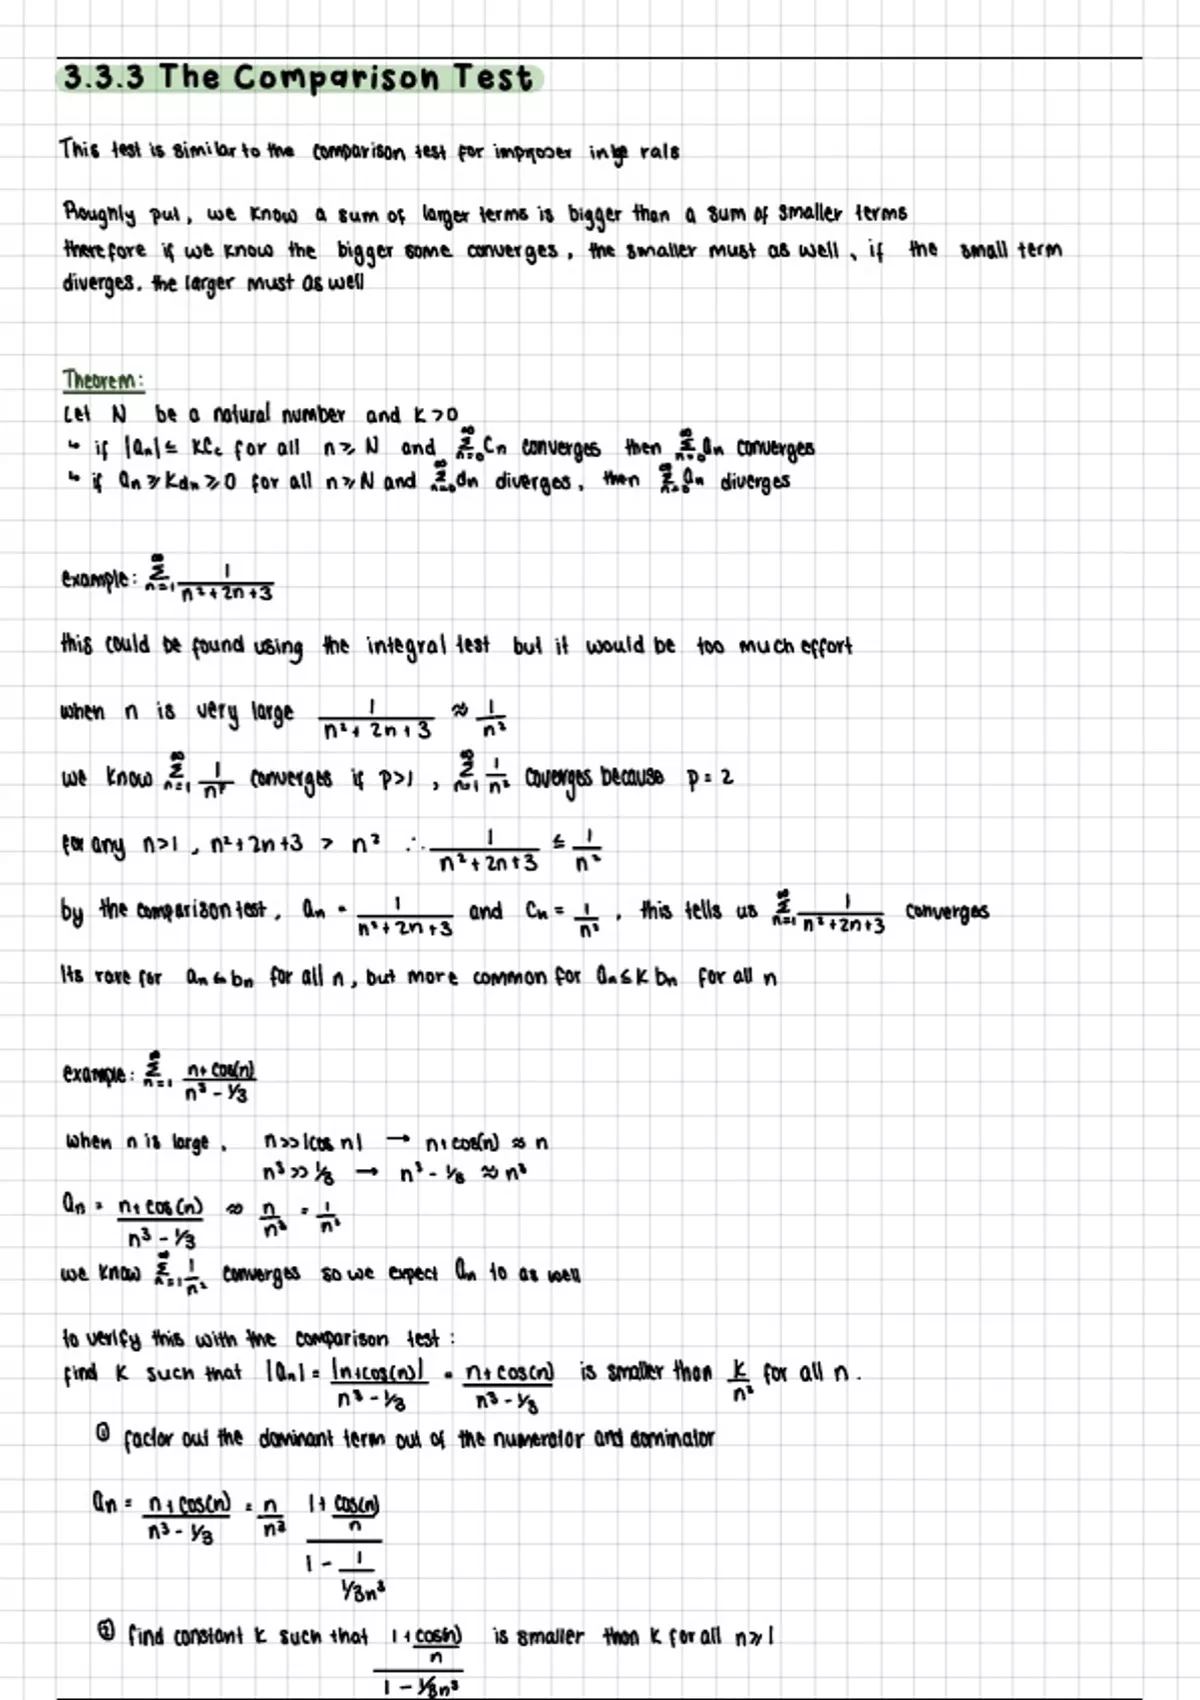 3.3.3 The Comparison Test
This test is similar to the comparison test for improper integrals
Roughly put, we know a sum of larger terms is bigger than a sum of smaller terms
therefore if we know the bigger some converges, the smaller must as well, if the small term
diverges. the larger must as well
Theorem:
Let N be a natural number and K>0
↳ if |an| ≤ KCc for all n≥N and ∑_{n=0}^∞ Cn converges then ∑_{n=0}^∞ an converges
↳ if an ≥ Kdn ≥ 0 for all n≥N and ∑_{n=0}^∞ dn diverges, then ∑_{n=0}^∞ an diverges
example: ∑_{n=1}^∞ 1/(n²+2n+3)
this could be found using the integral test but it would be too much effort
when n is very large 1/(n²+2n+3) ≈ 1/n²
we know ∑_{n=1}^∞ 1/n^p converges if p>1, ∑_{n=1}^∞ 1/n² coverges because p=2
for any n>1, n²+2n+3 > n² ∴ 1/(n²+2n+3) ≤ 1/n²
by the comparison test, an = 1/(n²+2n+3) and Cn = 1/n², this tells us ∑_{n=1}^∞ 1/(n²+2n+3) converges
Its rare for an ≤ bn for all n, but more common for an ≤ K bn for all n
example: ∑_{n=1}^∞ (n+cos(n))/(n³-1/3)
when n is large, n>>|cos n| → n+cos(n) ≈ n
n³>>1/3 → n³-1/3 ≈ n³
an = (n+cos(n))/(n³-1/3) ≈ n/n³ = 1/n²
we know ∑_{n=1}^∞ 1/n² converges so we expect an to as well
to verify this with the comparison test:
find K such that |an| = |n+cos(n)|/(n³-1/3) = (n+cos(n))/(n³-1/3) is smaller than K/n² for all n.
① factor out the dominant term out of the numerator and dominator
an = (n+cos(n))/(n³-1/3) = n/n³ (1+cos(n)/n)/(1-1/(1/3n³))
② find constant K such that (1+cos(n)/n)/(1-1/3n³) is smaller than K for all n≥1